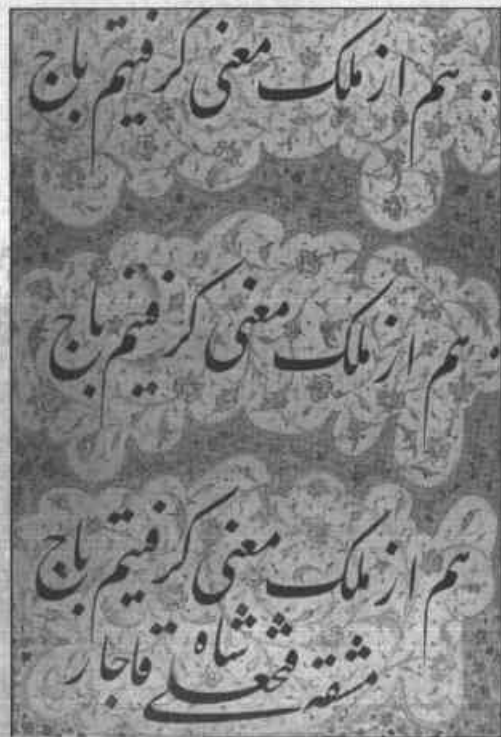 هم از ملک معنی گرفتیم باج
هم از ملک معنی گرفتیم باج
هم از ملک معنی گرفتیم باج
مشقه فتحعلی شاه قاجار